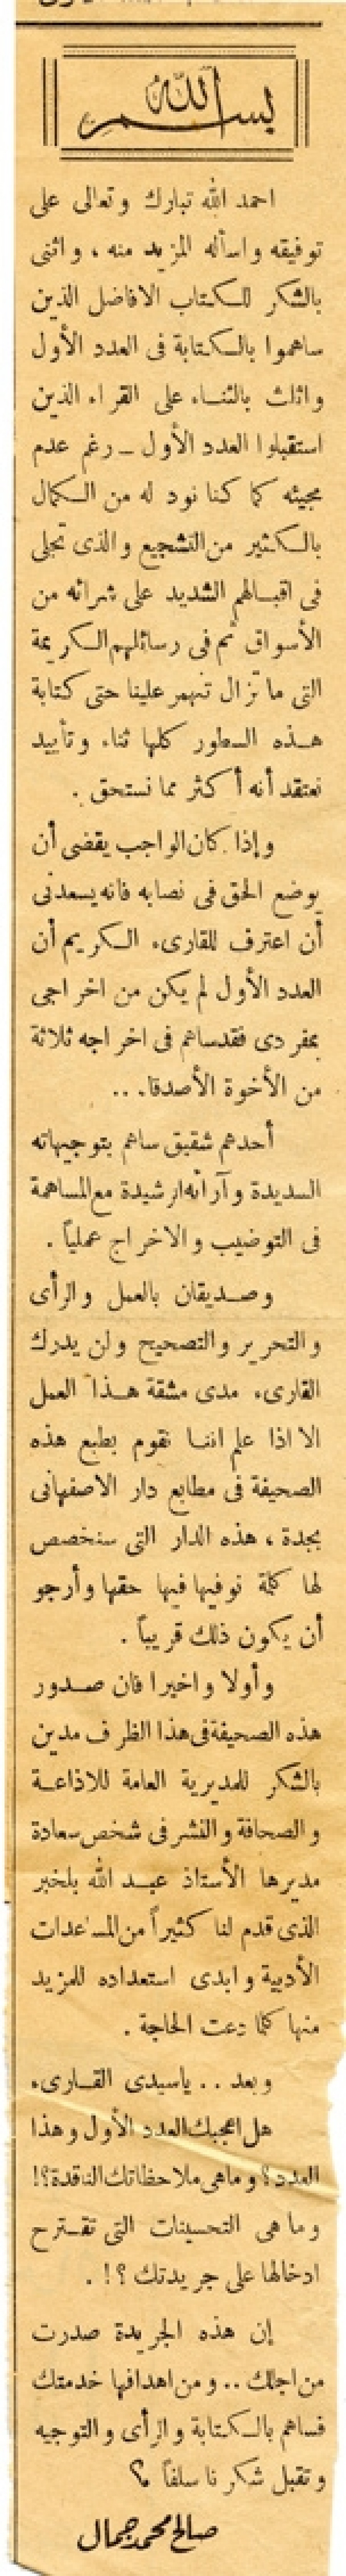 بسم الله
احمد الله تبارك وتعالى على
توفيقه واسأله المزيد منه ، واثنى
بالشكر للكتاب الافاضل الذين
ساهموا بالكتابة فى العدد الأول
واثلث بالثناء على القراء الذين
استقبلوا العدد الأول ـ رغم عدم
مجيئه كما كنا نود له من الكمال
بالكثير من التشجيع والذى تجلى
فى اقبالهم الشديد على شرائه من
الأسواق ثم فى رسائلهم الكريمة
التى ما تزال تنهمر علينا حتى كتابة
هذه السطور كلها ثناء وتأييد
نعتقد أنه أكثر مما نستحق .
وإذا كان الواجب يقضى أن
يوضع الحق فى نصابه فانه يسعدنى
أن اعترف للقارىء الكريم أن
العدد الأول لم يكن من اخراجى
بمفردى فقد ساهم فى اخراجه ثلاثة
من الأخوة الأصدقاء ..
أحدهم شقيق ساهم بتوجيهاته
السديدة وآرائه الرشيدة مع المساهمة
فى التوضيب والاخراج عملياً .
وصديقان بالعمل والرأى
والتحرير والتصحيح ولن يدرك
القارىء مدى مشقة هذا العمل
الا اذا علم اننا نقوم بطبع هذه
الصحيفة فى مطابع دار الاصفهانى
بجدة ، هذه الدار التى سنخصص
لها كلمة نوفيها فيها حقها وأرجو
أن يكون ذلك قريباً .
وأولا واخيرا فان صدور
هذه الصحيفة فى هذا الظرف مدين
بالشكر للمديرية العامة للاذاعة
والصحافة والنشر فى شخص سعادة
مديرها الأستاذ عبد الله بلخير
الذى قدم لنا كثيراً من المساعدات
الأدبية وابدى استعداده للمزيد
منها كلما دعت الحاجة .
وبعد .. ياسيدى القارىء
هل اعجبك العدد الأول وهذا
العدد ؟ وماهى ملاحظاتك الناقدة ؟!
وما هى التحسينات التى تقترح
ادخالها على جريدتك ؟! .
إن هذه الجريدة صدرت
من اجلك .. ومن اهدافها خدمتك
فساهم بالكتابة والرأى والتوجيه
وتقبل شكرنا سلفاً ؟
صالح محمد جمال